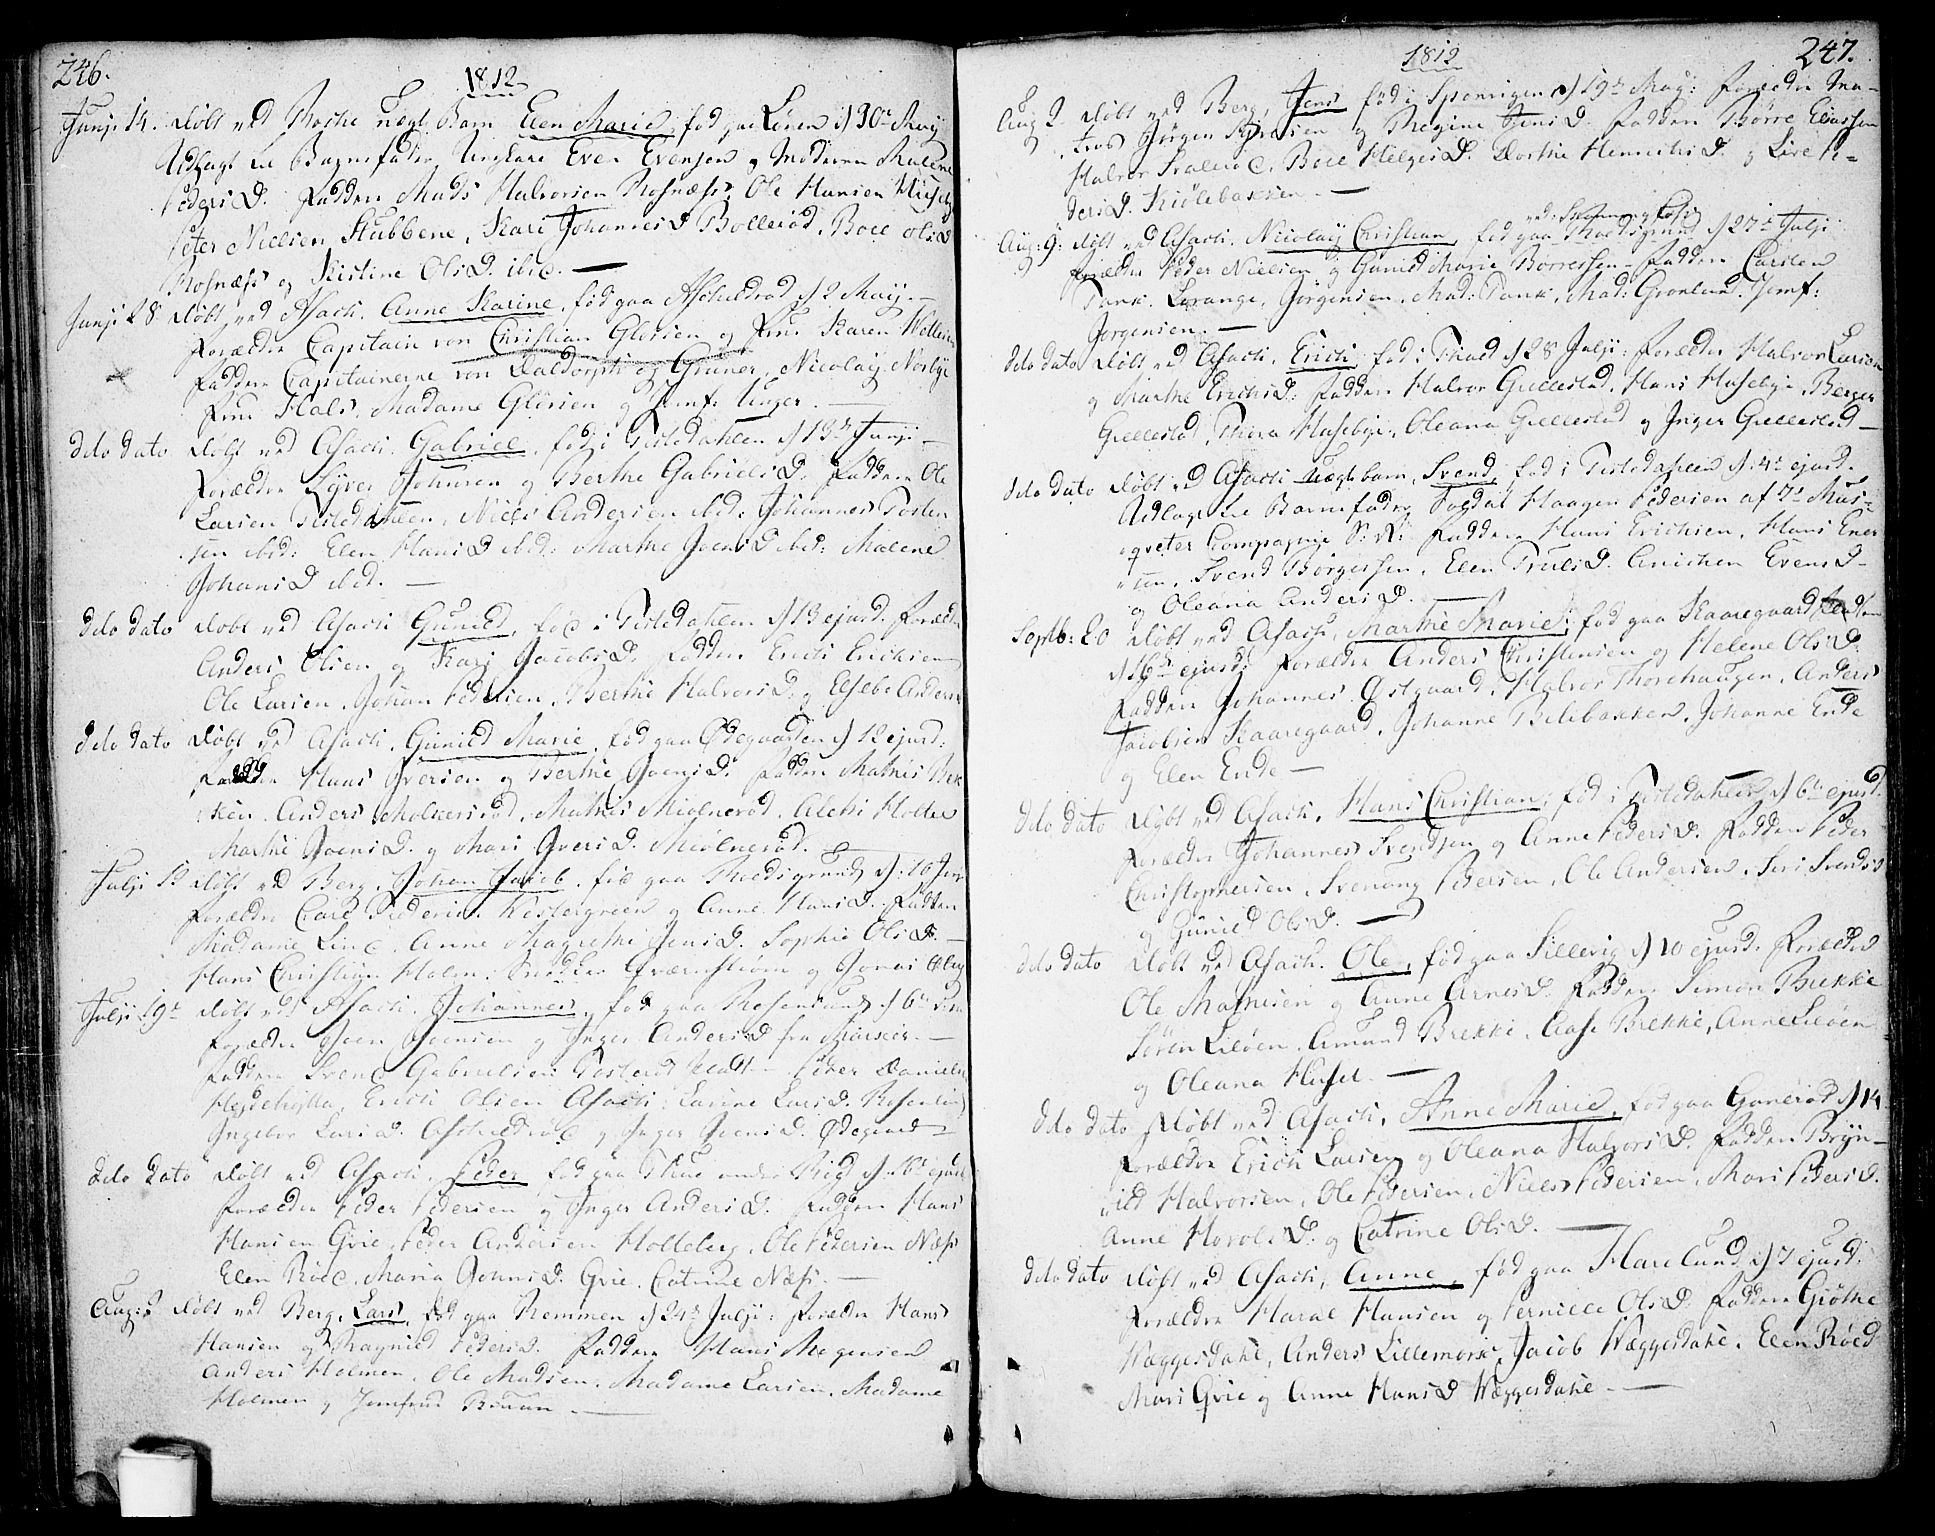 246.
1812
Junji 14. Døbt ved Rocke uægt Barn Elen Marie, fød paa Løren d 30te Maij
Udlagt til Barnefader Ungkarl Even Evensen og Moderen Malene
Peders D. Faddere Mads Halvorsen Rosnæss, Ole Hansen
Peter Nielsen Stubbene, Kari Johannes D Bollerød, Boel Ols D
Rosnæss og Kistine Ols D. ibid. —
Junji 28 Døbt ved Asach, Anne Karine, fød paa Aschulsrød d 2 Maij. —
Forældre Capitain von Christian Glørsen og Frue Karen
Faddere Capitainerne von Daldorph og Gruner, Nicolaij
Frue Hals, Madame Glörsen og Jomf. Unger. —
dito dato Døbt ved Asach. Gabriel, fød i Tistedahlen d 13de Junji —
Forældre Syver Johnsen og Berthe Gabriels D. Faddere Ole
Larsen Tistedahlen, Niels Andersen ibid: Johannes Tosten
sen ibid: Elen Hans D ibid: Marthe Joens D ibid: Malene
Johans D ibid. —
dito dato Døbt ved Asach Gunild, fød i Tistedahlen d 13 ejusd. Forældre
Anders Olsen og Kari Jacobs D. Faddere Erich Ericksen
Ole Larsen, Johan Pedersen, Berthe Halvors D. og Elsebe Anders
dito dato Døbt ved Asach, Gunild Marie, fød paa Ødegaarden d 12 ejusd:
Forældre Hans Iversen og Berthe Joens D. Faddere Mathis Bak
ken, Anders Molkersrød, Mathis Miølnerød, Alethe Holten
Marthe Joens D. og Mari Ivers D. Miølnerød. —
Julji 12 Døbt ved Berg, Johan Jacob, fød paa Rødsgrund d: 16
Forældre Carl Frederic Westergreen og Anne Hans D. Faddere
Madame Lind, Anne Magrethe Jens D. Sophie Ols D. —
Hans Christian Holm, og Jonas
Julji 19de Døbt ved Asach. Johannes, fød paa Rosenlund d 6te
Forældre Joen Joensen og Inger Anders D fra —
Faddere Svend Gabrielsen Peder Daniels
Hejdehytta, Erich Olsen Asach, Larine Lars D. Rosenlund
Ingebor Lars D. Aschulsrød og Inger Joens D. Ødegaard —
dito dato Døbt ved Asach, Peder fød paa under Rød d. 16de ejusd
Forældre Peder Pedersen og Inger Anders D. Faddere Hans
Hansen Gvie, Peder Andersen Holleberg, Ole Pedersen Næss
Elen Rød, Maria Johns D. Gvie, Catrine Næss. —
Aug: 2 Døbt ved Berg, Lars, fød paa Remmen d 24de Julji: Forældre Hans
Hansen og Ragnild Peders D. Faddere Hans Mogensen
Anders Holmen, Ole Madsen, Madame Larsen, Madame
Holmen og Jomfrue —
1812
247.
Aug 2 Døbt ved Berg, Jens fød i Sponvigen d 19de Maij: Forældre Ma-
tros Jørgen og Regine Jens D. Faddere Børre Eliassen
Halvor Svalerød, Boel Helges D. Dorthe Henrichs D. og Live Pe-
ders D. Kiølebakken. —
Aug: 9: Døbt ved Asach, Nicolaij Christian, fød paa Rødsgrund d 27de Julji
Forældre Peder Nielsen og Gunild Marie Børressen — Faddere Carsten
Tank, Lorange, Jørgensen, Mad: Tank, Mad: Grønlund, Jomf:
Jørgensen. —
dito dato Døbt ved Asach, Erich fød i d 28 Julji: Forældre Halvor Larsen
og Marthe Erichs D. Faddere Halvor Gullestad, Hans Husebye, Berger
Gullestad, Thora Husebye, Oleana Gullestad og Inger Gullestad —
dito dato Døbt ved Asach uægte barn, Svend, fød i Tistedahlen d. 4de ejusd.
Udlagt til Barnefader, Soldat Haagen Pedersen af 7de Mus-
qveter Compagnie S: R: Faddere Hans Erichsen, Hans Ener
sen, Svend Børgersen, Elen Truls D. Anichen Evens D —
og Oleana Anders D. —
Septb: 20 Døbt ved Asach, Marthe Marie, fød paa Kaaregaard
d 16de ejusd: Forældre Anders Christensen og Helene Ols D.
Faddere Johannes Østgaard, Halvor Thorehaugen, Anders
Jacobsen Kaaregaard, Johanne Belebakken, Johanne Ende
og Elen Ende —
dito dato Døbt ved Asach, Hans Christian, fød i Tistedahlen d 6te ejusd.
Forældre Johannes Svendsen og Anne Peders D. Faddere Peder
Christophersen, Svenung Pedersen, Ole Andersen, Siri Svends D
og Gunild Ols D. —
dito dato Døbt ved Asach. Ole, fød paa Sillevig d 10 ejusd: Forældre
Ole Mathisen og Anne Arnes D. Faddere Simon Brekke
Søren Liløen, Amund Brekke, Aase Brekke, Anne Liløen
og Oleana Husel. —
dito dato Døbt ved Asach, Anne Marie, fød paa Gonerød d 14
Forældre Erich Larsen og Oleana Halvors D. Faddere Bryn-
ild Halvorsen, Ole Pedersen, Niels Pedersen, Mari Peders D.
Anne Harols D. og Catrine Ols D. —
dito dato Døbt ved Asach, Anne, fød paa Harelund d 7 ejusd:
Forældre Haral Hansen og Pernille Ols D. Faddere Grøthe
Wæggesdahl, Anders Lillemork, Jacob Wæggesdahl, Elen Røed
Mari Gvie og Anne Hans D Wæggesdahl —